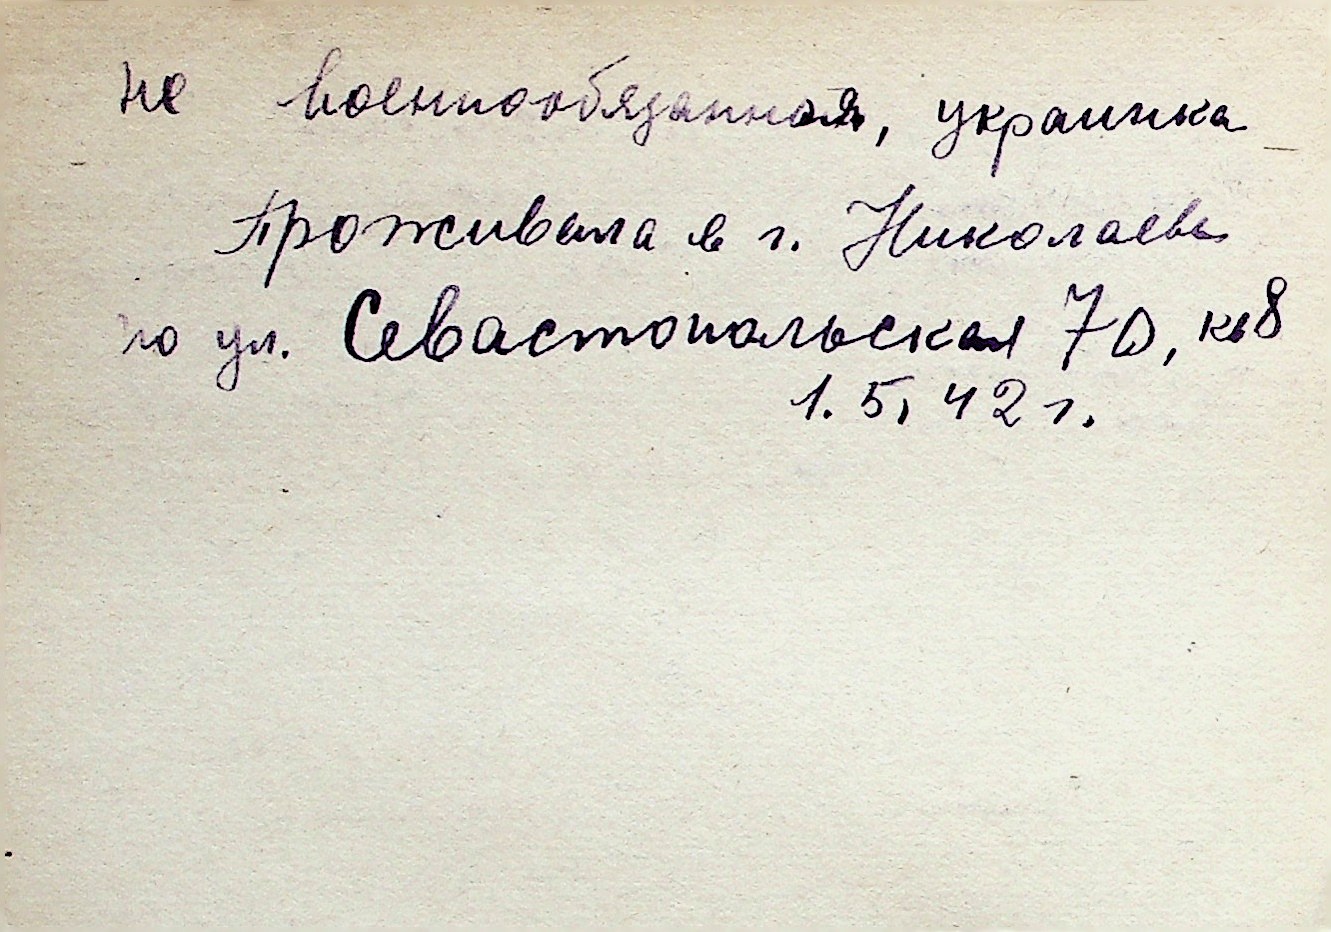 не военнообязанная, украинка
проживала в г. Николаеве
по ул. Севастопольская 70, кв 8
1.5, 42 г.